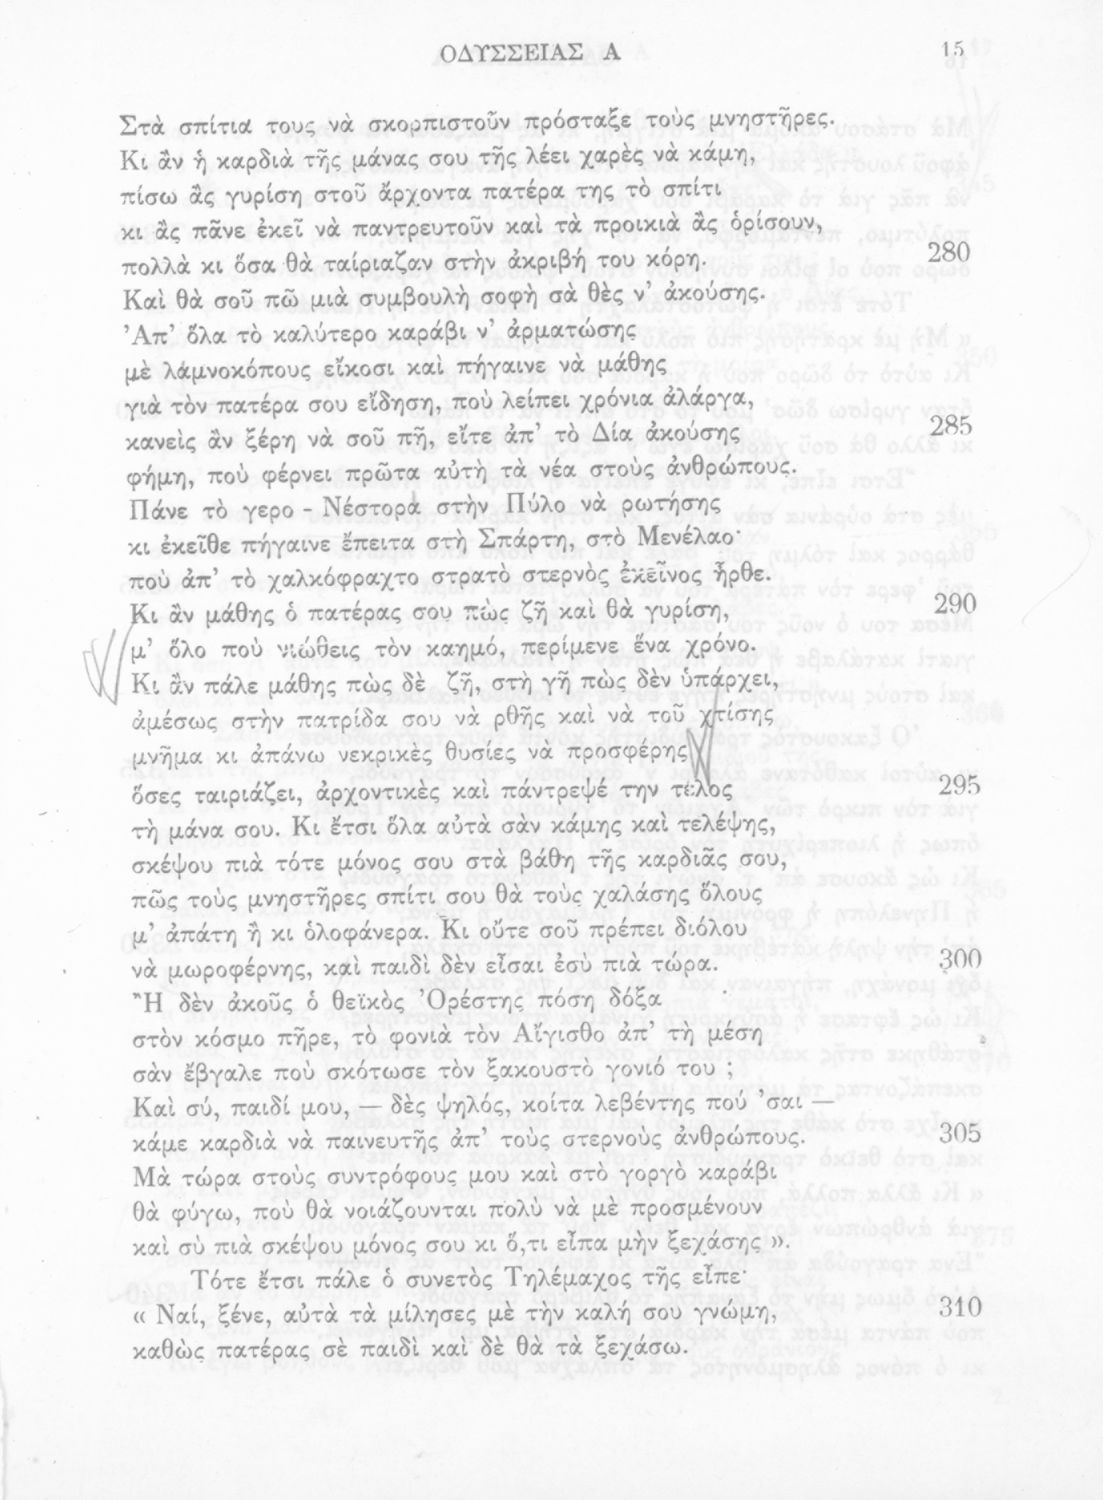 ΟΔΥΣΣΕΙΑΣ Α 15
Στὰ σπίτια τους νὰ σκορπιστοῦν πρόσταξε τοὺς μνηστῆρες.
Κι ἂν ἡ καρδιὰ τῆς μάνας σου τῆς λέει χαρὲς νὰ κάμη,
πίσω ἂς γυρίση στοῦ ἄρχοντα πατέρα της τὸ σπίτι
κι ἂς πᾶνε ἐκεῖ νὰ παντρευτοῦν καὶ τὰ προικιὰ ἂς ὁρίσουν,
πολλὰ κι ὅσα θὰ ταίριαζαν στὴν ἀκριβή του κόρη. 280
Καὶ θὰ σοῦ πῶ μιὰ συμβουλὴ σοφὴ σὰ θὲς ν’ ἀκούσης.
’Απ’ ὅλα τὸ καλύτερο καράβι ν’ ἀρματώσης
μὲ λάμνοκόπους εἴκοσι καὶ πήγαινε νὰ μάθης
γιὰ τὸν πατέρα σου εἴδηση, ποὺ λείπει χρόνια ἀλάργα,
κανεὶς ἂν ξέρη νὰ σοῦ πῆ, εἴτε ἀπ’ τὸ Δία ἀκούσης 285
φήμη, ποὺ φέρνει πρῶτα αὐτὴ τὰ νέα στοὺς ἀνθρώπους.
Πάνε τὸ γερο - Νέστορὰ στὴν Πύλο νὰ ρωτήσης
κι ἐκεῖθε πήγαινε ἔπειτα στὴ Σπάρτη, στὸ Μενέλαο·
ποὺ ἀπ’ τὸ χαλκόφραχτο στρατὸ στερνὸς ἐκεῖνος ἦρθε.
Κι ἂν μάθης ὁ πατέρας σου πὼς ζῆ καὶ θὰ γυρίση, 290
μ’ ὅλο ποὺ νιώθεις τὸν καημό, περίμενε ἕνα χρόνο.
Κι ἂν πάλε μάθης πὼς δὲ ζῆ, στὴ γῆ πὼς δὲν ὑπάρχει,
ἀμέσως στὴν πατρίδα σου νὰ ρθῆς καὶ νὰ τοῦ χτίσης
μνῆμα κι ἀπάνω νεκρικὲς θυσίες νὰ προσφέρης
ὅσες ταιριάζει, ἀρχοντικὲς καὶ πάντρεψέ την τέλος 295
τὴ μάνα σου. Κι ἔτσι ὅλα αὐτὰ σὰν κάμης καὶ τελέψης,
σκέψου πιὰ τότε μόνος σου στὰ βάθη τῆς καρδιᾶς σου,
πῶς τοὺς μνηστῆρες σπίτι σου θὰ τοὺς χαλάσης ὅλους
μ’ ἀπάτη ἢ κι ὁλοφάνερα. Κι οὔτε σοῦ πρέπει διόλου
νὰ μωροφέρνης, καὶ παιδὶ δὲν εἶσαι ἐσὺ πιὰ τώρα. 300
Ἢ δὲν ἀκοῦς ὁ θεϊκὸς ’Ορέστης πόση δόξα
στὸν κόσμο πῆρε, τὸ φονιὰ τὸν Αἴγισθο ἀπ’ τὴ μέση
σὰν ἔβγαλε ποὺ σκότωσε τὸν ξακουστὸ γονιό του ;
Καὶ σύ, παιδί μου, — δὲς ψηλός, κοίτα λεβέντης πού ’σαι —
κάμε καρδιὰ νὰ παινευτῆς ἀπ’ τοὺς στερνοὺς ἀνθρώπους. 305
Μὰ τώρα στοὺς συντρόφους μου καὶ στὸ γοργὸ καράβι
θὰ φύγω, ποὺ θὰ νοιάζουνται πολὺ νὰ μὲ προσμένουν
καὶ σὺ πιὰ σκέψου μόνος σου κι ὅ,τι εἶπα μὴν ξεχάσης ».
Τότε ἔτσι πάλε ὁ συνετὸς Τηλέμαχος τῆς εἶπε·
« Ναί, ξένε, αὐτὰ τὰ μίλησες μὲ τὴν καλή σου γνώμη, 310
καθὼς πατέρας σὲ παιδὶ καὶ δὲ θὰ τὰ ξεχάσω.